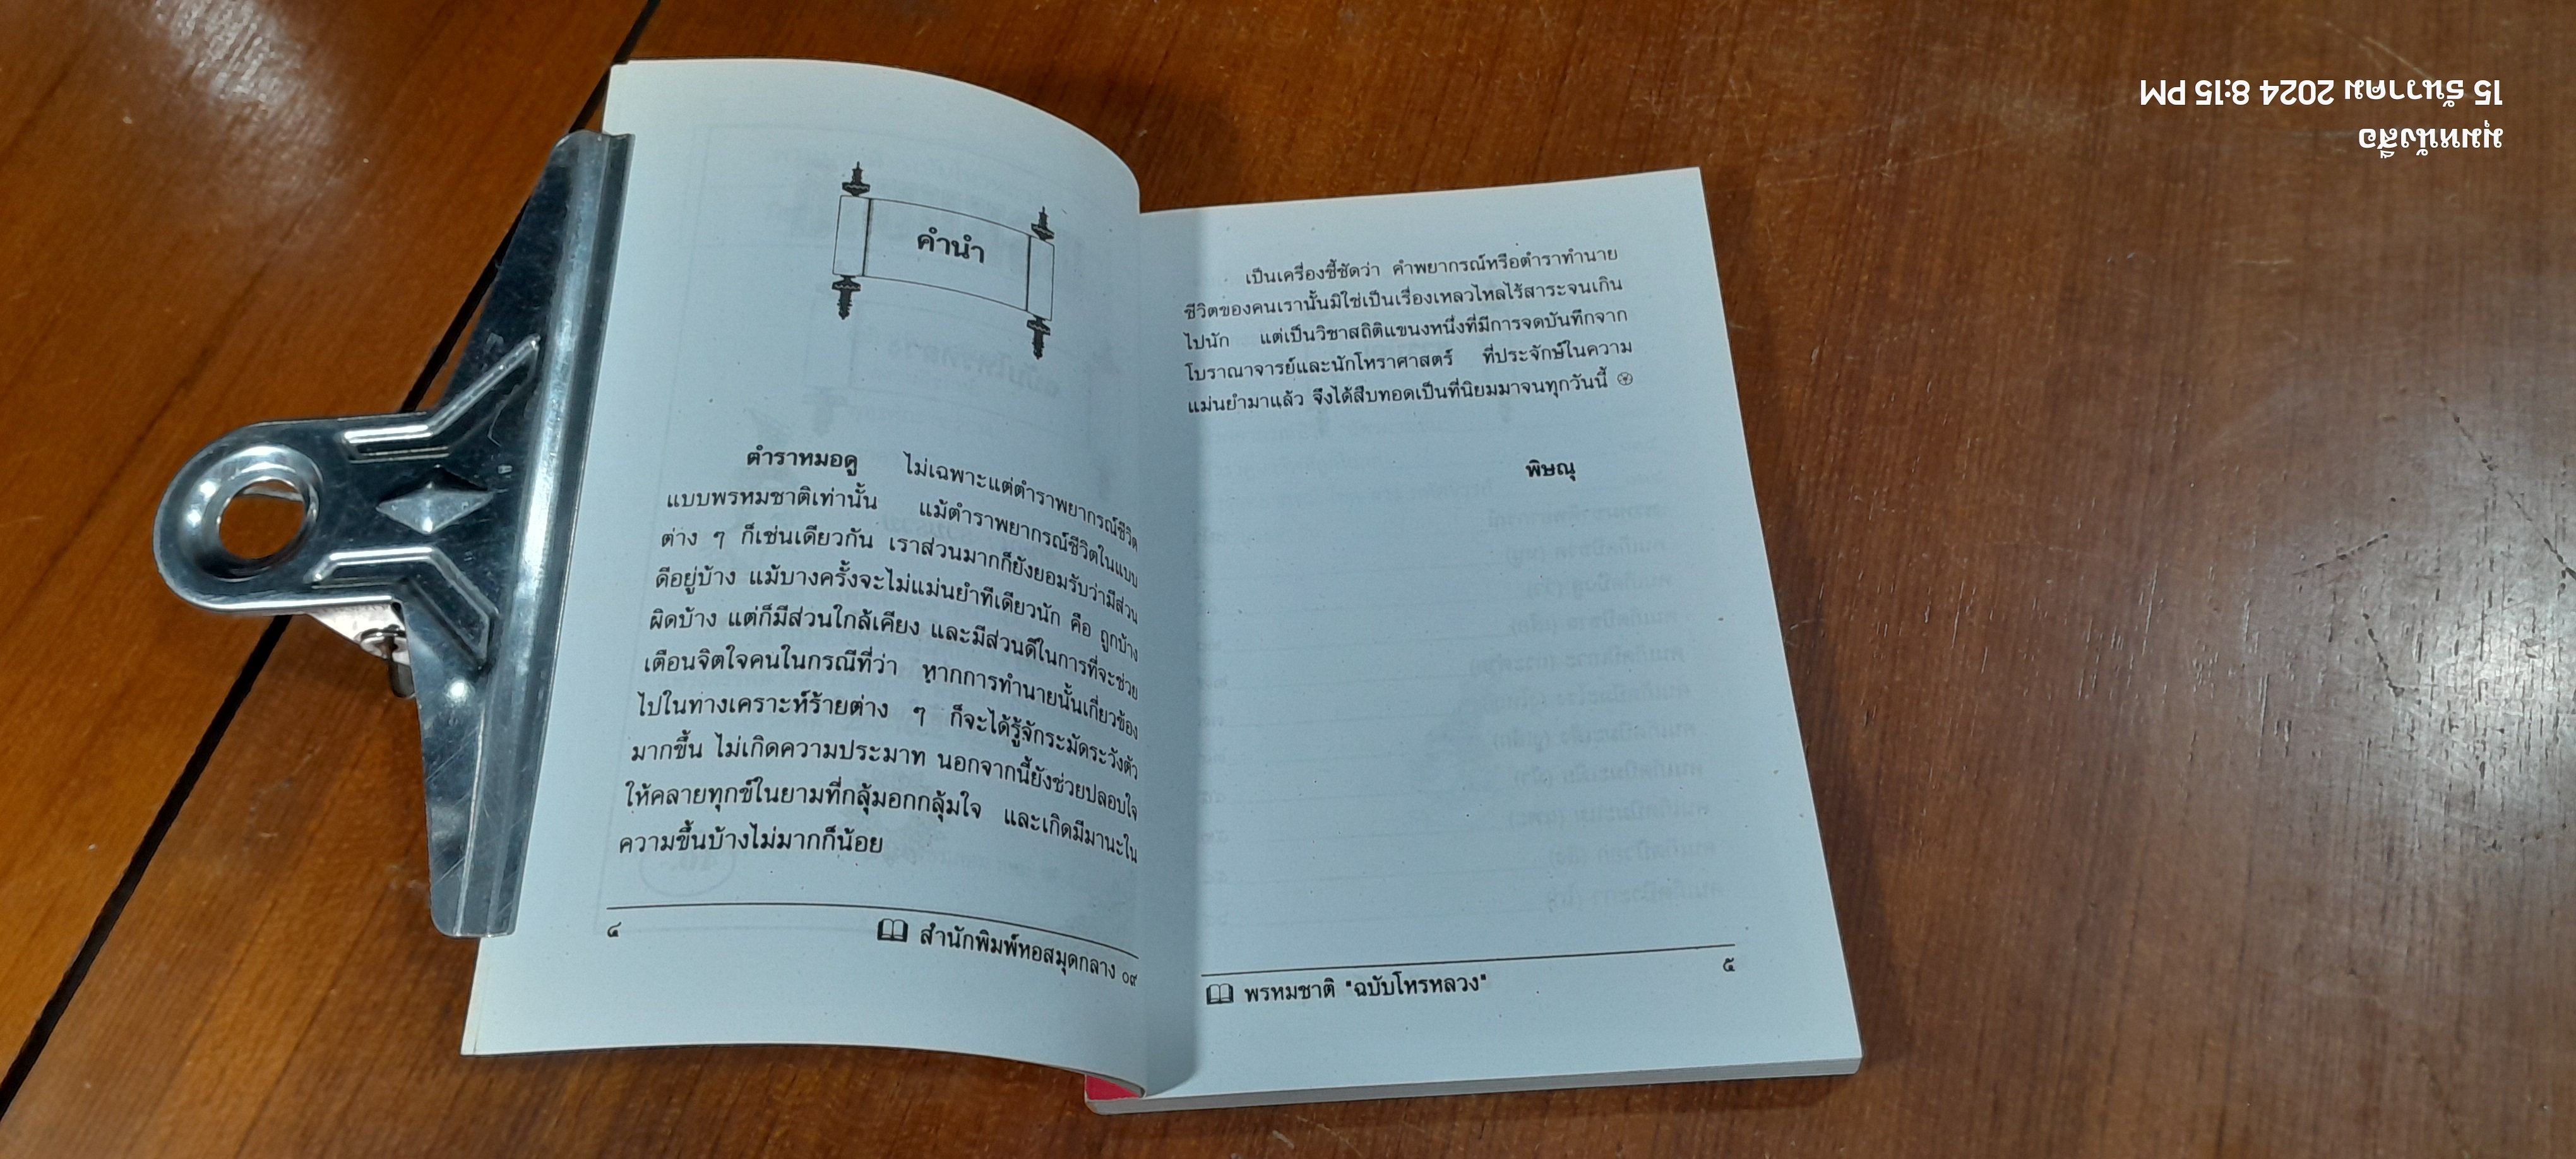 คำนำ
ตำราหมอดู ไม่เฉพาะแต่ตำราพยากรณ์ชีวิต
แบบพรหมชาติเท่านั้น แม้ตำราพยากรณ์ชีวิตในแบบ
ต่าง ๆ ก็เช่นเดียวกัน เราส่วนมากก็ยังยอมรับว่ามีส่วน
ดีอยู่บ้าง แม้บางครั้งจะไม่แม่นยำทีเดียวนัก คือ ถูกบ้าง
ผิดบ้าง แต่ก็มีส่วนใกล้เคียง และมีส่วนดีในการที่จะช่วย
เตือนจิตใจคนในกรณีที่ว่า หากการทำนายนั้นเกี่ยวข้อง
ไปในทางเคราะห์ร้ายต่าง ๆ ก็จะได้รู้จักระมัดระวังตัว
มากขึ้น ไม่เกิดความประมาท นอกจากนี้ยังช่วยปลอบใจ
ให้คลายทุกข์ในยามที่กลุ้มอกกลุ้มใจ และเกิดมีมานะใน
ความขึ้นบ้างไม่มากก็น้อย
๔ สำนักพิมพ์หอสมุดกลาง ๐๙
เป็นเครื่องชี้ชัดว่า คำพยากรณ์หรือตำราทำนาย
ชีวิตของคนเรานั้นมิใช่เป็นเรื่องเหลวไหลไร้สาระจนเกิน
ไปนัก แต่เป็นวิชาสถิติแขนงหนึ่งที่มีการจดบันทึกจาก
โบราณาจารย์และนักโหราศาสตร์ ที่ประจักษ์ในความ
แม่นยำมาแล้ว จึงได้สืบทอดเป็นที่นิยมมาจนทุกวันนี้
พิษณุ
พรหมชาติ "ฉบับโหรหลวง" ๕
มุมหนังสือ
15 ธันวาคม 2024 8:15 PM